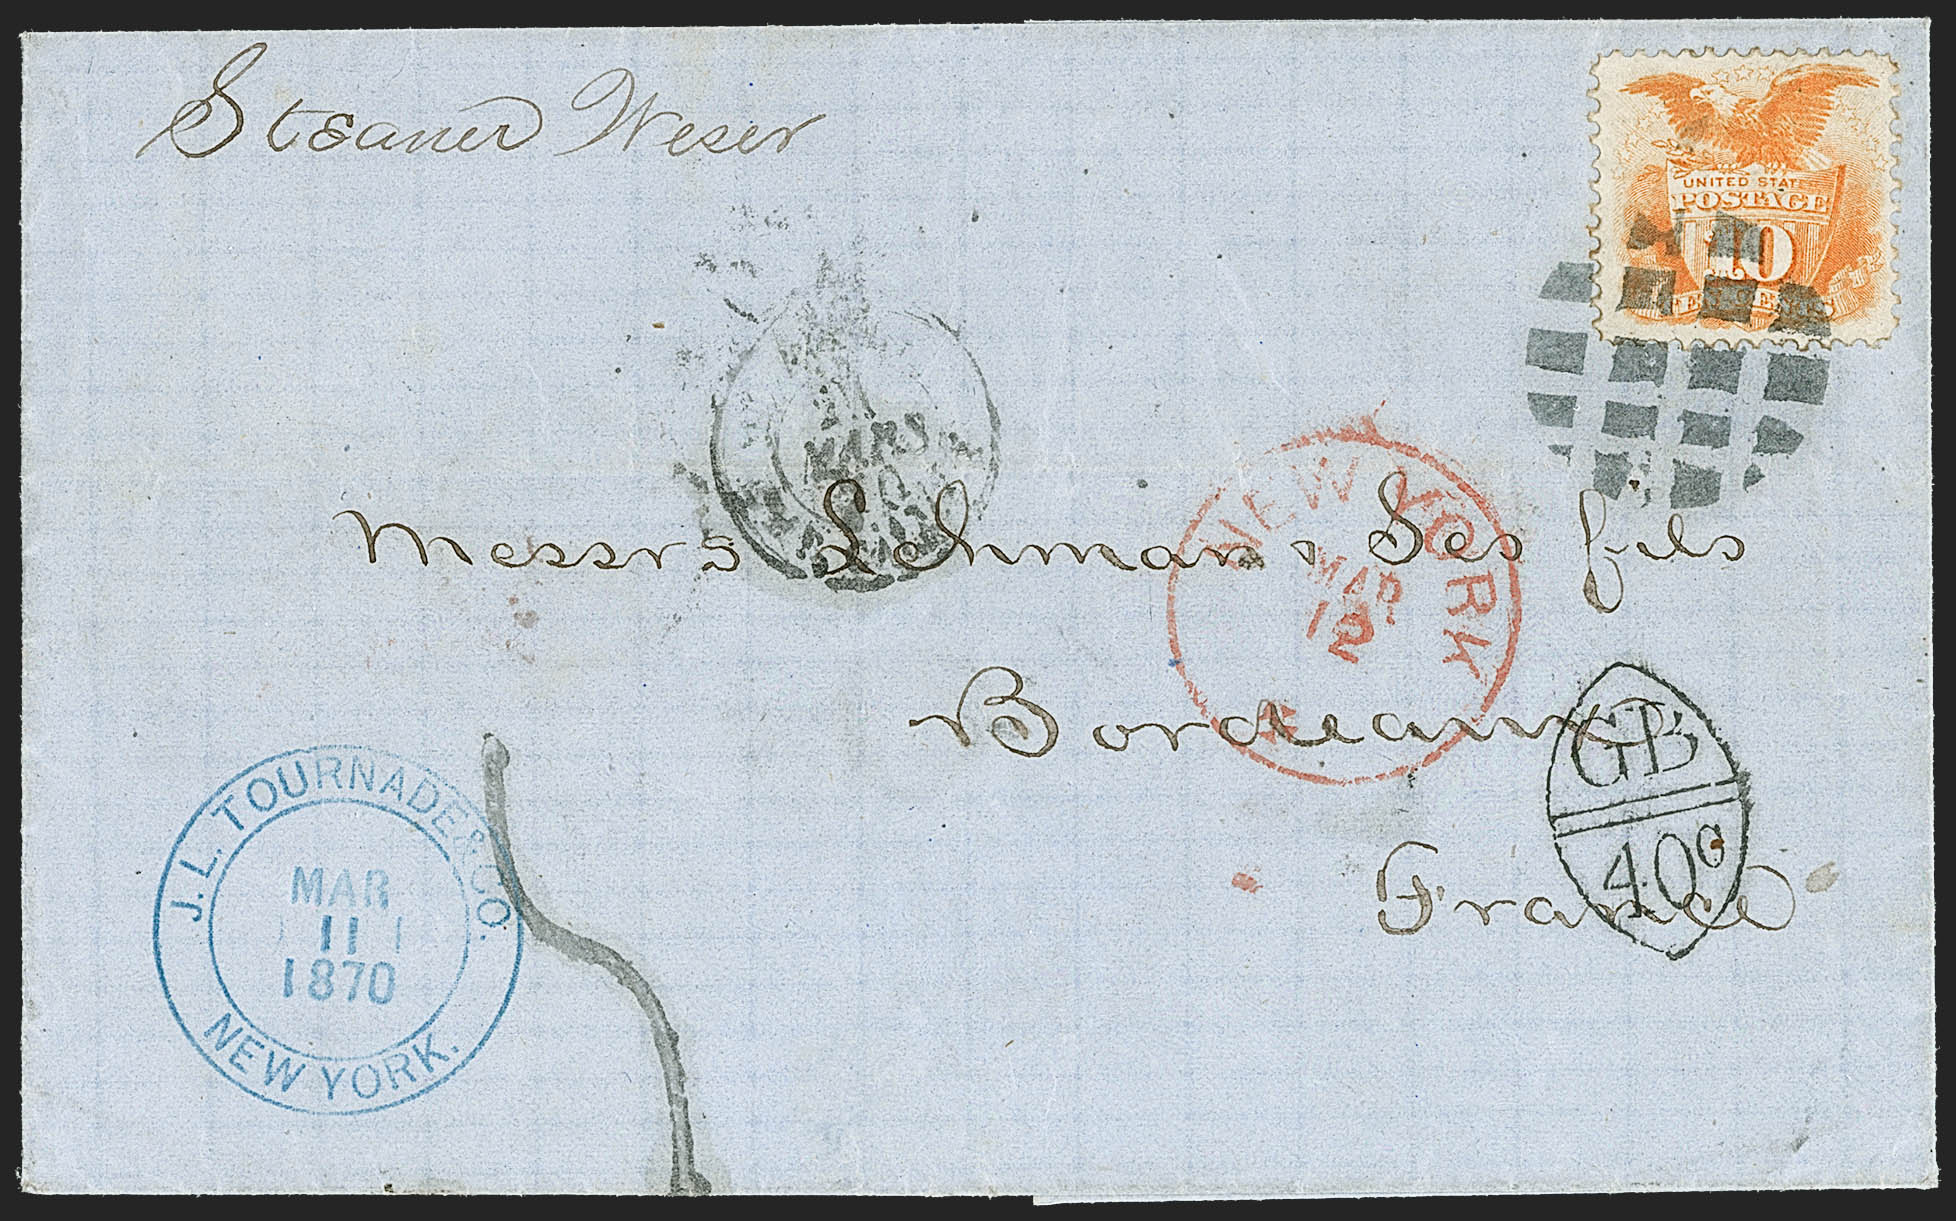 Steamer Weser
UNITED STATE
POSTAGE
10
MARS
NEW YORK
MAR
12
Messrs Lehman & Ses fils
Bordeaux
France
GB
40c
J. L. TOURNADE & CO.
MAR
11
1870
NEW YORK.